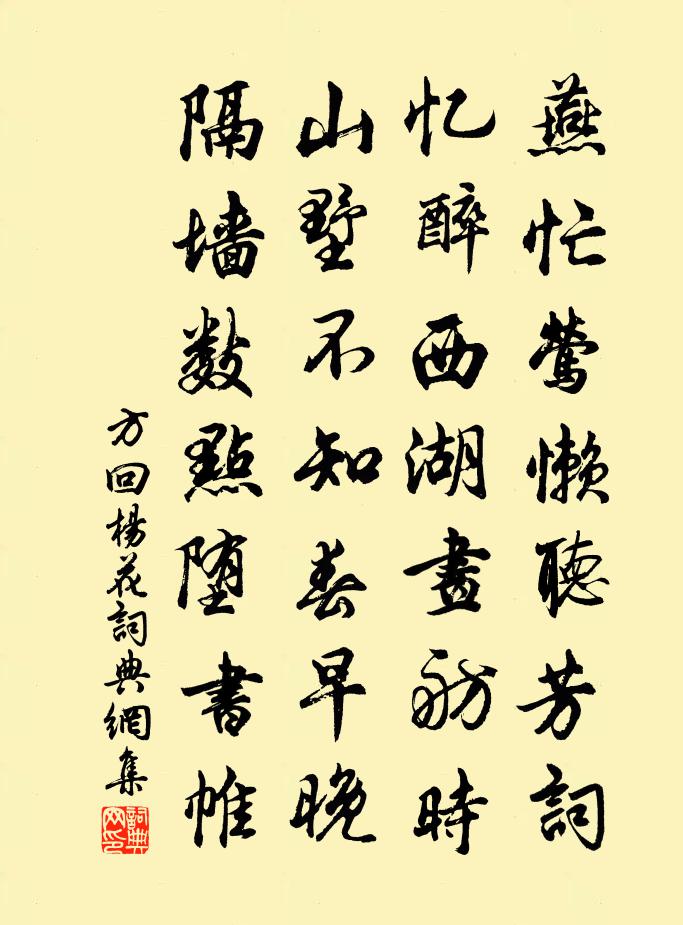 燕忙莺懒聽芳詞
忆醉西湖畫舫時
山墅不知春早晚
隔墙数點堕書帷
方回楊花詞典網集
詞典网印